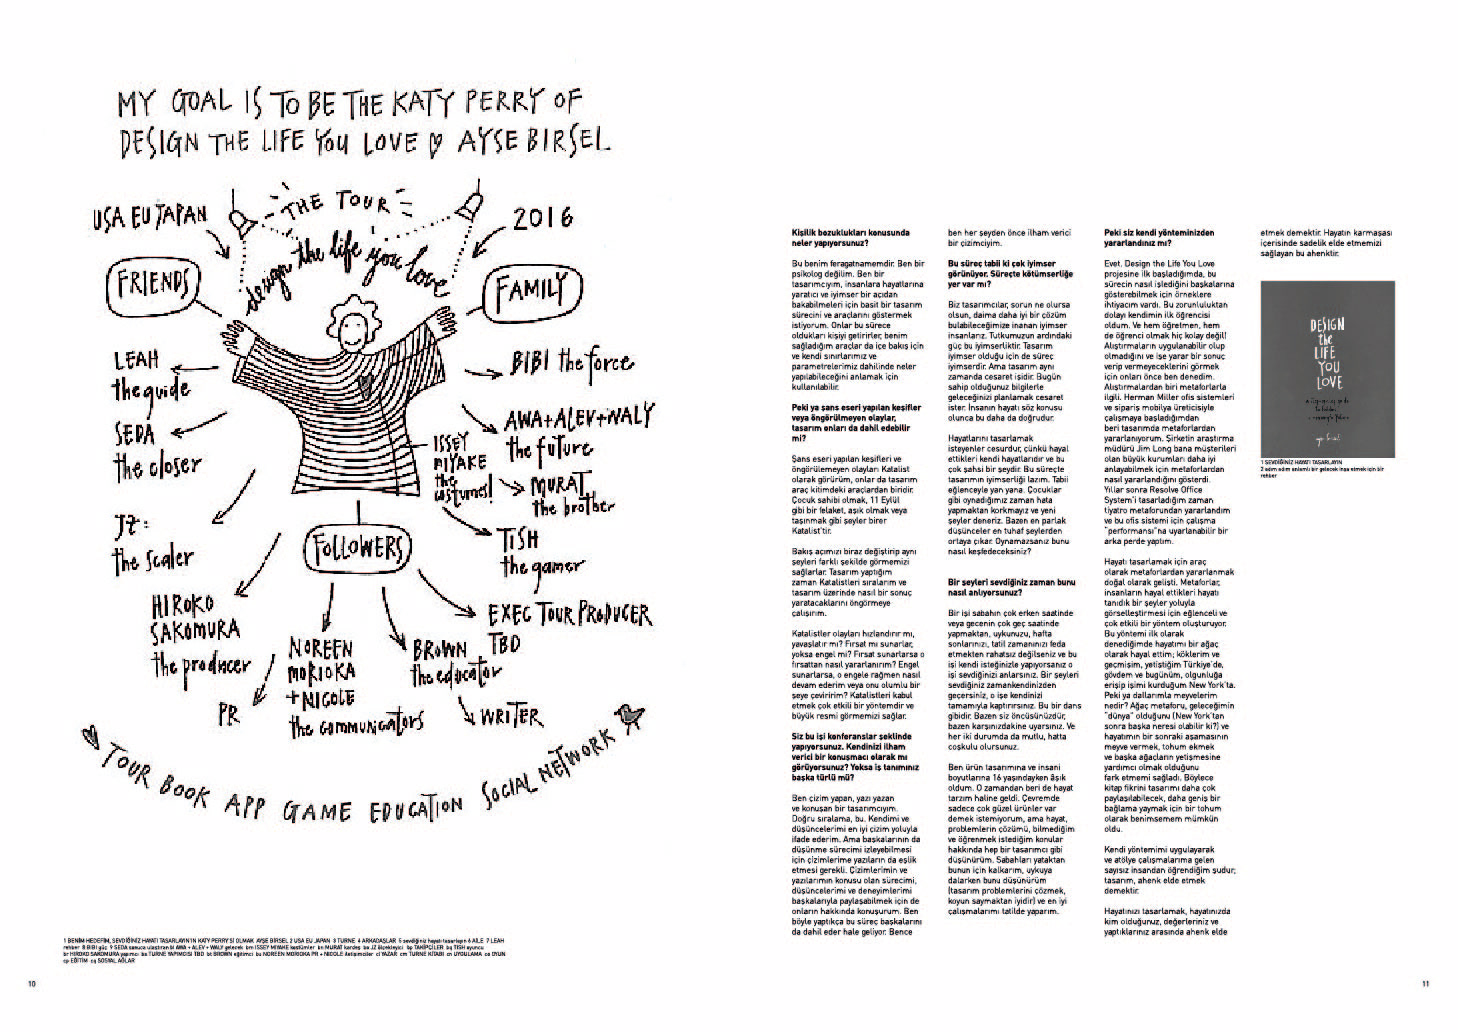 MY GOAL IS TO BE THE KATY PERRY OF
DESIGN THE LIFE YOU LOVE AYSE BIRSEL
USA EU JAPAN
THE TOUR
2016
design the life you love
FRIENDS
FAMILY
LEAH
the guide
BIBI the force
SEDA
the closer
AWA+ALEV+WALY
the future
ISSEY
MIYAKE
the
costumes!
MURAT
the brother
JZ:
the scaler
FOLLOWERS
TISH
the gamer
HIROKO
SAKOMURA
the producer
EXEC TOUR PRODUCER
TBD
NOREEN
MORIOKA
+NICOLE
the communicators
BROWN
the educator
PR
WRITER
TOUR BOOK APP GAME EDUCATION SOCIAL NETWORK
1 BENİM HEDEFİM, SEVDİĞİNİZ HAYATI TASARLAYIN'IN KATY PERRY'Sİ OLMAK AYŞE BİRSEL 2 USA EU JAPAN 3 TURNE 4 ARKADAŞLAR 5 sevdiğiniz hayatı tasarlayın 6 AİLE 7 LEAH
rehber 8 BIBI güç 9 SEDA sonuca ulaştıran bl AWA + ALEV + WALY gelecek bm ISSEY MIYAKE kostümler bn MURAT kardeş bo JZ ölçekleyici bp TAKİPÇİLER bq TISH oyuncu
br HIROKO SAKOMURA yapımcı bs TURNE YAPIMCISI TBD bt BROWN eğitimci bu NOREEN MORIOKA PR + NICOLE iletişimciler cl YAZAR cm TURNE KİTABI cn UYGULAMA co OYUN
cp EĞİTİM cq SOSYAL AĞLAR
10
Kişilik bozuklukları konusunda
neler yapıyorsunuz?
Bu benim feragatnamemdir. Ben bir
psikolog değilim. Ben bir
tasarımcıyım, insanlara hayatlarına
yaratıcı ve iyimser bir açıdan
bakabilmeleri için basit bir tasarım
sürecini ve araçlarını göstermek
istiyorum. Onlar bu sürece
oldukları kişiyi getirirler, benim
sağladığım araçlar da içe bakış için
ve kendi sınırlarımız ve
parametrelerimiz dahilinde neler
yapılabileceğini anlamak için
kullanılabilir.
Peki ya şans eseri yapılan keşifler
veya öngörülmeyen olaylar,
tasarım onları da dahil edebilir
mi?
Şans eseri yapılan keşifleri ve
öngörülemeyen olayları Katalist
olarak görürüm, onlar da tasarım
araç kitimdeki araçlardan biridir.
Çocuk sahibi olmak, 11 Eylül
gibi bir felaket, aşık olmak veya
taşınmak gibi şeyler birer
Katalist'tir.
Bakış açımızı biraz değiştirip aynı
şeyleri farklı şekilde görmemizi
sağlarlar. Tasarım yaptığım
zaman Katalistleri sıralarım ve
tasarım üzerinde nasıl bir sonuç
yaratacaklarını öngörmeye
çalışırım.
Katalistler olayları hızlandırır mı,
yavaşlatır mı? Fırsat mı sunarlar,
yoksa engel mi? Fırsat sunarlarsa o
fırsattan nasıl yararlanırım? Engel
sunarlarsa, o engele rağmen nasıl
devam ederim veya onu olumlu bir
şeye çeviririm? Katalistleri kabul
etmek çok etkili bir yöntemdir ve
büyük resmi görmemizi sağlar.
Siz bu işi konferanslar şeklinde
yapıyorsunuz. Kendinizi ilham
verici bir konuşmacı olarak mı
görüyorsunuz? Yoksa iş tanımınız
başka türlü mü?
Ben çizim yapan, yazı yazan
ve konuşan bir tasarımcıyım.
Doğru sıralama, bu. Kendimi ve
düşüncelerimi en iyi çizim yoluyla
ifade ederim. Ama başkalarının da
düşünme sürecimi izleyebilmesi
için çizimlerime yazıların da eşlik
etmesi gerekli. Çizimlerimin ve
yazılarımın konusu olan sürecimi,
düşüncelerimi ve deneyimlerimi
başkalarıyla paylaşabilmek için de
onların hakkında konuşurum. Ben
böyle yaptıkça bu süreç başkalarını
da dahil eder hale geliyor. Bence
ben her şeyden önce ilham verici
bir çizimciyim.
Bu süreç tabii ki çok iyimser
görünüyor. Süreçte kötümserliğe
yer var mı?
Biz tasarımcılar, sorun ne olursa
olsun, daima daha iyi bir çözüm
bulabileceğimize inanan iyimser
insanlarız. Tutkumuzun ardındaki
güç bu iyimserliktir. Tasarım
iyimser olduğu için de süreç
iyimserdir. Ama tasarım aynı
zamanda cesaret işidir. Bugün
sahip olduğunuz bilgilerle
geleceğinizi planlamak cesaret
ister. İnsanın hayatı söz konusu
olunca bu daha da doğrudur.
Hayatlarını tasarlamak
isteyenler cesurdur, çünkü hayal
ettikleri kendi hayatlarıdır ve bu
çok şahsi bir şeydir. Bu süreçte
tasarımın iyimserliği lazım. Tabii
eğlenceyle yan yana. Çocuklar
gibi oynadığımız zaman hata
yapmaktan korkmayız ve yeni
şeyler deneriz. Bazen en parlak
düşünceler en tuhaf şeylerden
ortaya çıkar. Oynamazsanız bunu
nasıl keşfedeceksiniz?
Bir şeyleri sevdiğiniz zaman bunu
nasıl anlıyorsunuz?
Bir işi sabahın çok erken saatinde
veya gecenin çok geç saatinde
yapmaktan, uykunuzu, hafta
sonlarınızı, tatil zamanınızı feda
etmekten rahatsız değilseniz ve bu
işi kendi isteğinizle yapıyorsanız o
işi sevdiğinizi anlarsınız. Bir şeyleri
sevdiğiniz zamankendinizden
geçersiniz, o işe kendinizi
tamamıyla kaptırırsınız. Bu bir dans
gibidir. Bazen siz öncüsünüzdür,
bazen karşınızdakine uyarsınız. Ve
her iki durumda da mutlu, hatta
coşkulu olursunuz.
Ben ürün tasarımına ve insani
boyutlarına 16 yaşındayken âşık
oldum. O zamandan beri de hayat
tarzım haline geldi. Çevremde
sadece çok güzel ürünler var
demek istemiyorum, ama hayat,
problemlerin çözümü, bilmediğim
ve öğrenmek istediğim konular
hakkında hep bir tasarımcı gibi
düşünürüm. Sabahları yataktan
bunun için kalkarım, uykuya
dalarken bunu düşünürüm
(tasarım problemlerini çözmek,
koyun saymaktan iyidir) ve en iyi
çalışmalarımı tatilde yaparım.
Peki siz kendi yönteminizden
yararlandınız mı?
Evet. Design the Life You Love
projesine ilk başladığımda, bu
sürecin nasıl işlediğini başkalarına
gösterebilmek için örneklere
ihtiyacım vardı. Bu zorunluluktan
dolayı kendimin ilk öğrencisi
oldum. Ve hem öğretmen, hem
de öğrenci olmak hiç kolay değil!
Alıştırmaların uygulanabilir olup
olmadığını ve işe yarar bir sonuç
verip vermeyeceklerini görmek
için onları önce ben denedim.
Alıştırmalardan biri metaforlarla
ilgili. Herman Miller ofis sistemleri
ve sipariş mobilya üreticisiyle
çalışmaya başladığımdan
beri tasarımda metaforlardan
yararlanıyorum. Şirketin araştırma
müdürü Jim Long bana müşterileri
olan büyük kurumları daha iyi
anlayabilmek için metaforlardan
nasıl yararlandığını gösterdi.
Yıllar sonra Resolve Office
System'i tasarladığım zaman
tiyatro metaforundan yararlandım
ve bu ofis sistemi için çalışma
"performansı"na uyarlanabilir bir
arka perde yaptım.
Hayatı tasarlamak için araç
olarak metaforlardan yararlanmak
doğal olarak gelişti. Metaforlar,
insanların hayal ettikleri hayatı
tanıdık bir şeyler yoluyla
görselleştirmesi için eğlenceli ve
çok etkili bir yöntem oluşturuyor.
Bu yöntemi ilk olarak
denediğimde hayatımı bir ağaç
olarak hayal ettim; köklerim ve
geçmişim, yetiştiğim Türkiye'de,
gövdem ve bugünüm, olgunluğa
erişip işimi kurduğum New York'ta.
Peki ya dallarımla meyvelerim
nedir? Ağaç metaforu, geleceğimin
"dünya" olduğunu (New York'tan
sonra başka neresi olabilir ki?) ve
hayatımın bir sonraki aşamasının
meyve vermek, tohum ekmek
ve başka ağaçların yetişmesine
yardımcı olmak olduğunu
fark etmemi sağladı. Böylece
kitap fikrini tasarımı daha çok
paylaşılabilecek, daha geniş bir
bağlama yaymak için bir tohum
olarak benimsemem mümkün
oldu.
Kendi yöntemimi uygulayarak
ve atölye çalışmalarıma gelen
sayısız insandan öğrendiğim şudur;
tasarım, ahenk elde etmek
demektir.
Hayatınızı tasarlamak, hayatınızda
kim olduğunuz, değerleriniz ve
yaptıklarınız arasında ahenk elde
etmek demektir. Hayatın karmaşası
içerisinde sadelik elde etmemizi
sağlayan bu ahenktir.
DESIGN
the
LIFE
YOU
LOVE
1 SEVDİĞİNİZ HAYATI TASARLAYIN
2 adım adım anlamlı bir gelecek inşa etmek için bir
rehber
11